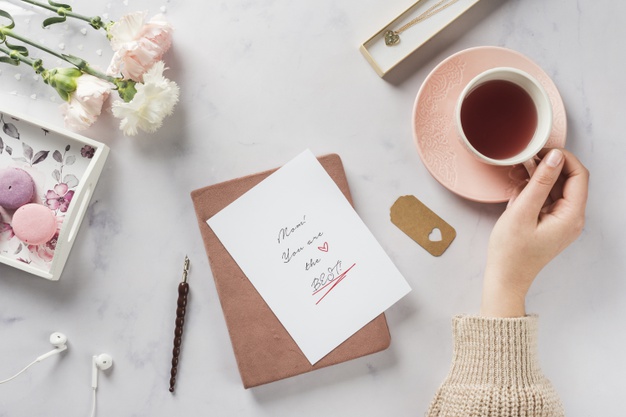 Mom!
You are
the
BEST